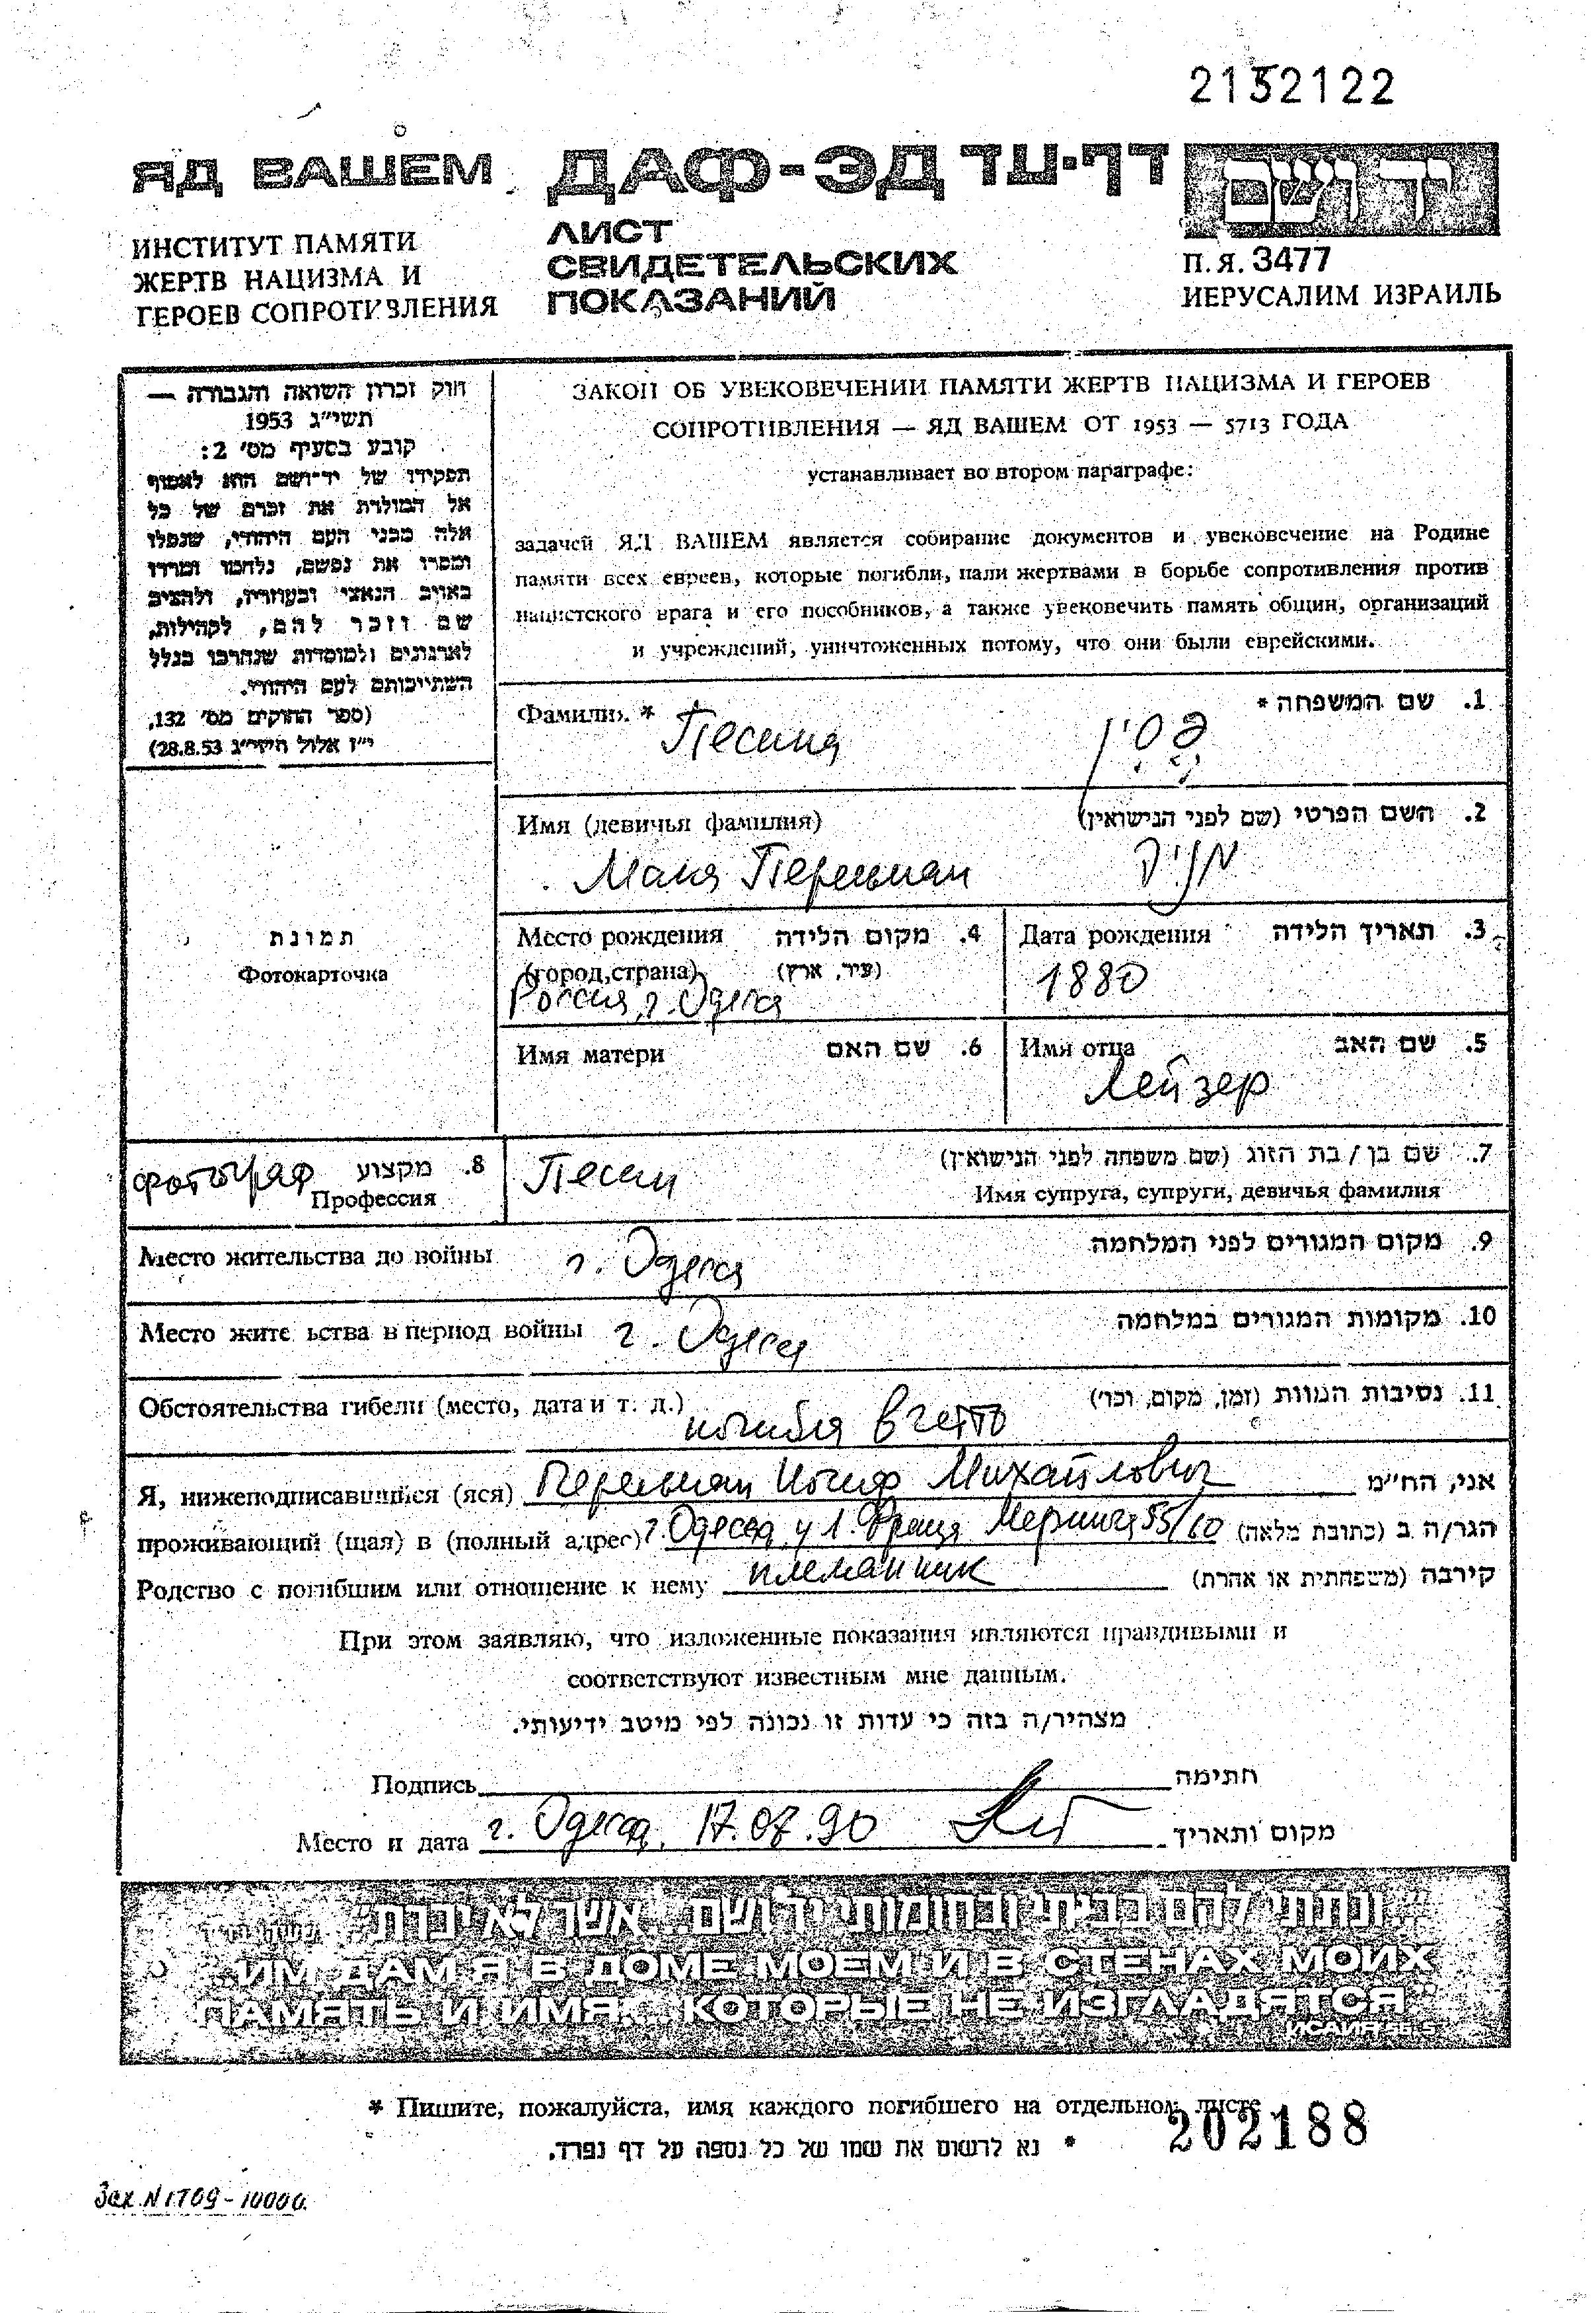 2152122
ЯД ВАШЕМ ДАФ-ЭД דף-עד יד ושם
ИНСТИТУТ ПАМЯТИ
ЖЕРТВ НАЦИЗМА И
ГЕРОЕВ СОПРОТИВЛЕНИЯ
ЛИСТ
СВИДЕТЕЛЬСКИХ
ПОКАЗАНИЙ
П.Я. 3477
ИЕРУСАЛИМ ИЗРАИЛЬ
חוק זכרון השואה והגבורה —
תשי"ג 1953
קובע בסעיף מס' 2:
תפקידו של יד-ושם הוא לאסוף
אל המולדת את זכרם של כל
אלה מבני העם היהודי, שנפלו
ומסרו את נפשם, נלחמו ומרדו
באויב הנאצי ובעוזריו, ולהציב
שם וזכר להם, לקהילות,
לארגונים ולמוסדות שנחרבו בגלל
השתייכותם לעם היהודי.
(ספר החוקים מס' 132,
י"ז אלול תשי"ג 28.8.53)
ЗАКОН ОБ УВЕКОВЕЧЕНИИ ПАМЯТИ ЖЕРТВ НАЦИЗМА И ГЕРОЕВ
СОПРОТИВЛЕНИЯ — ЯД ВАШЕМ ОТ 1953 — 5713 ГОДА
устанавливает во втором параграфе:
задачей ЯД ВАШЕМ является собирание документов и увековечение на Родине
памяти всех евреев, которые погибли, пали жертвами в борьбе сопротивления против
нацистского врага и его пособников, а также увековечить память общин, организаций
и учреждений, уничтоженных потому, что они были еврейскими.
Фамилия * 1. שם המשפחה *
Песина פסין
Имя (девичья фамилия) 2. השם הפרטי (שם לפני הנישואין)
Маня Перельман מניה
תמונת
Фотокарточка
Место рождения 4. מקום הלידה Дата рождения 3. תאריך הלידה
(город,страна) (עיר, ארץ) 1880
Россия, г. Одесса
Имя матери 6. שם האם Имя отца 5. שם האב
Лейзер
фотограф 8. מקצוע
Профессия
Песин 7. שם בן / בת הזוג (שם משפחה לפני הנישואין)
Имя супруга, супруги, девичья фамилия
Место жительства до войны г. Одесса 9. מקום המגורים לפני המלחמה
Место жительства в период войны г. Одесса 10. מקומות המגורים במלחמה
Обстоятельства гибели (место, дата и т. д.) погибла в гетто 11. נסיבות המוות (זמן, מקום, וכו')
Я, нижеподписавшийся (яся) Перельман Иосиф Михайлович אני, הח"מ
проживающий (щая) в (полный адрес) г. Одесса ул. Франца Меринга 55/60 הגר/ה ב (כתובת מלאה)
Родство с погибшим или отношение к нему племянник קירבה (משפחתית או אחרת)
При этом заявляю, что изложенные показания являются правдивыми и
соответствуют известным мне данным.
מצהיר/ה בזה כי עדות זו נכונה לפי מיטב ידיעותי.
Подпись חתימה
Место и дата г. Одесса, 17.07.90 מקום ותאריך
"ונתתי להם בביתי ובחומותי יד ושם... אשר לא יכרת"
"...ИМ ДАМ Я В ДОМЕ МОЕМ И В СТЕНАХ МОИХ
ПАМЯТЬ И ИМЯ... КОТОРЫЕ НЕ ИЗГЛАДЯТСЯ"
* Пишите, пожалуйста, имя каждого погибшего на отдельном листе
* נא לרשום את שמו של כל נספה על דף נפרד.
202188
Зак. N 1709-10000.